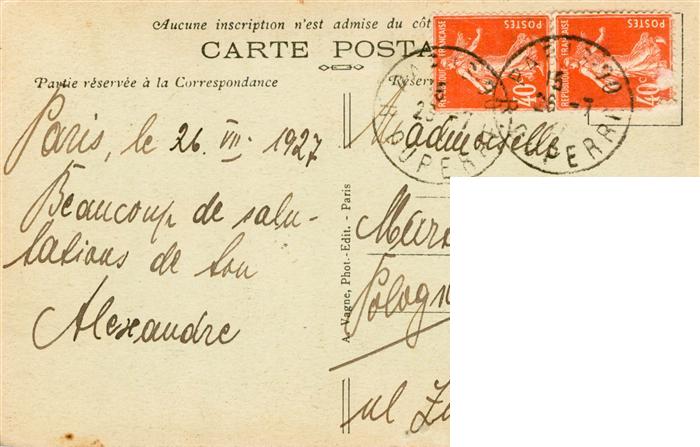 Aucune inscription n'est admise du côt
CARTE POSTA
Partie réservée à la Correspondance
Réserv
POSTES
REPUBLIQUE FRANÇAISE
40c
POSTES
REPUBLIQUE FRANÇAISE
40c
15
26 - 7
Paris, le 26. VII. 1927
Beaucoup de salu-
tations de ton
Alexandre
A. Vagne, Phot.-Edit. - Paris
Mademoiselle
Mar
Pologn
ul